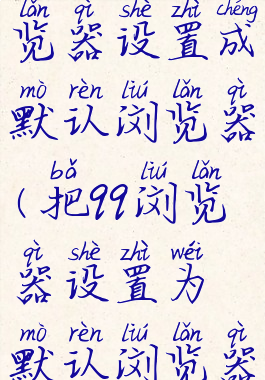 lǎn qì shè zhì chéng
览器设置成
mò rèn liú lǎn qì
默认浏览器
bǎ liú lǎn
(把99浏览
qì shè zhì wéi
器设置为
mò rèn liú lǎn qì
默认浏览器